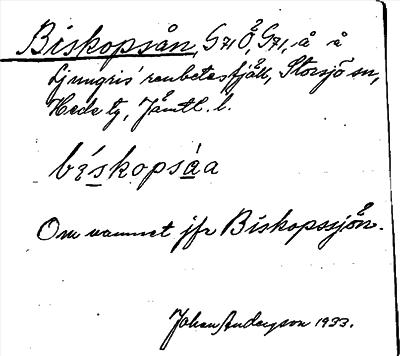 Biskopsån, G71Ö, G71, å å
Ljungris' renbetesfjäll, Storsjö sn,
Hede tg, Jämtl. l.
bískopsáa
Om namnet jfr Biskopssjön.
Johan Anderzon 1933.